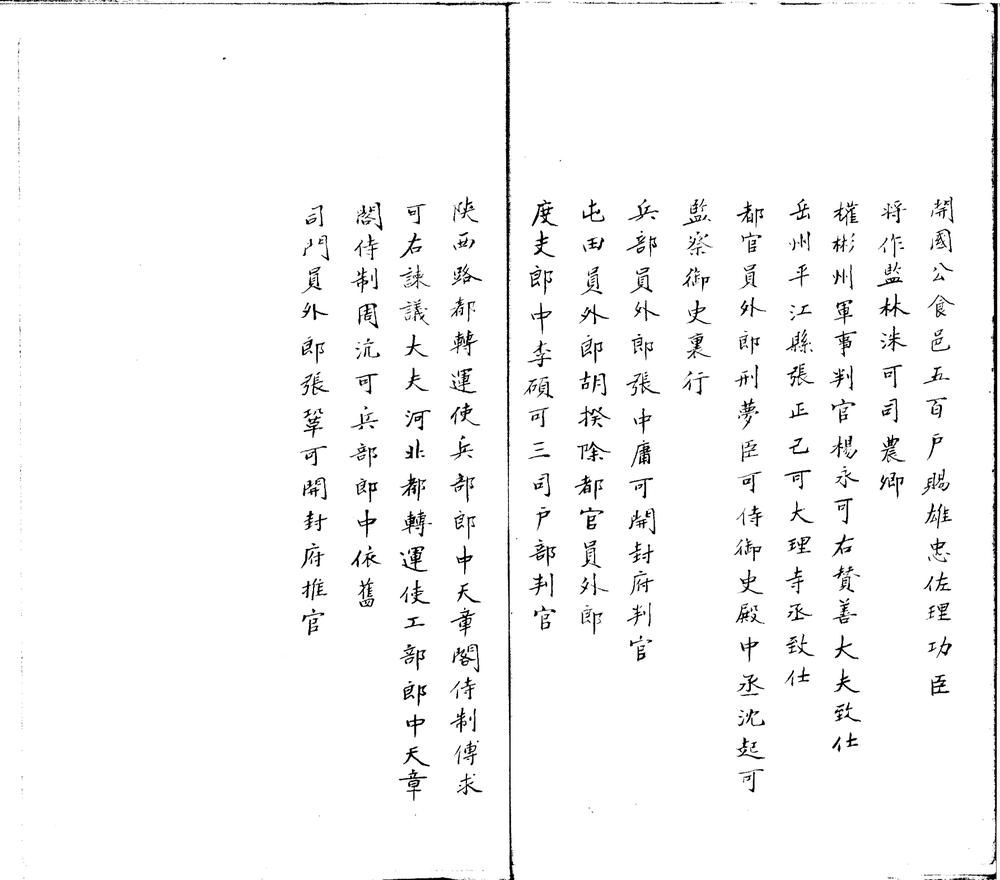 開國公食邑五百戶賜雄忠佐理功臣
將作監林洙可司農卿
權彬州軍事判官楊永可右贊善大夫致仕
岳州平江縣張正己可大理寺丞致仕
都官員外郎刑夢臣可侍御史殿中丞沈起可
監察御史裏行
兵部員外郎張中庸可開封府判官
屯田員外郎胡揆除都官員外郎
度支郎中李碩可三司戶部判官
陝西路都轉運使兵部郎中天章閣侍制傅求
可右諫議大夫河北都轉運使工部郎中天章
閣侍制周沆可兵部郎中依舊
司門員外郎張鞏可開封府推官